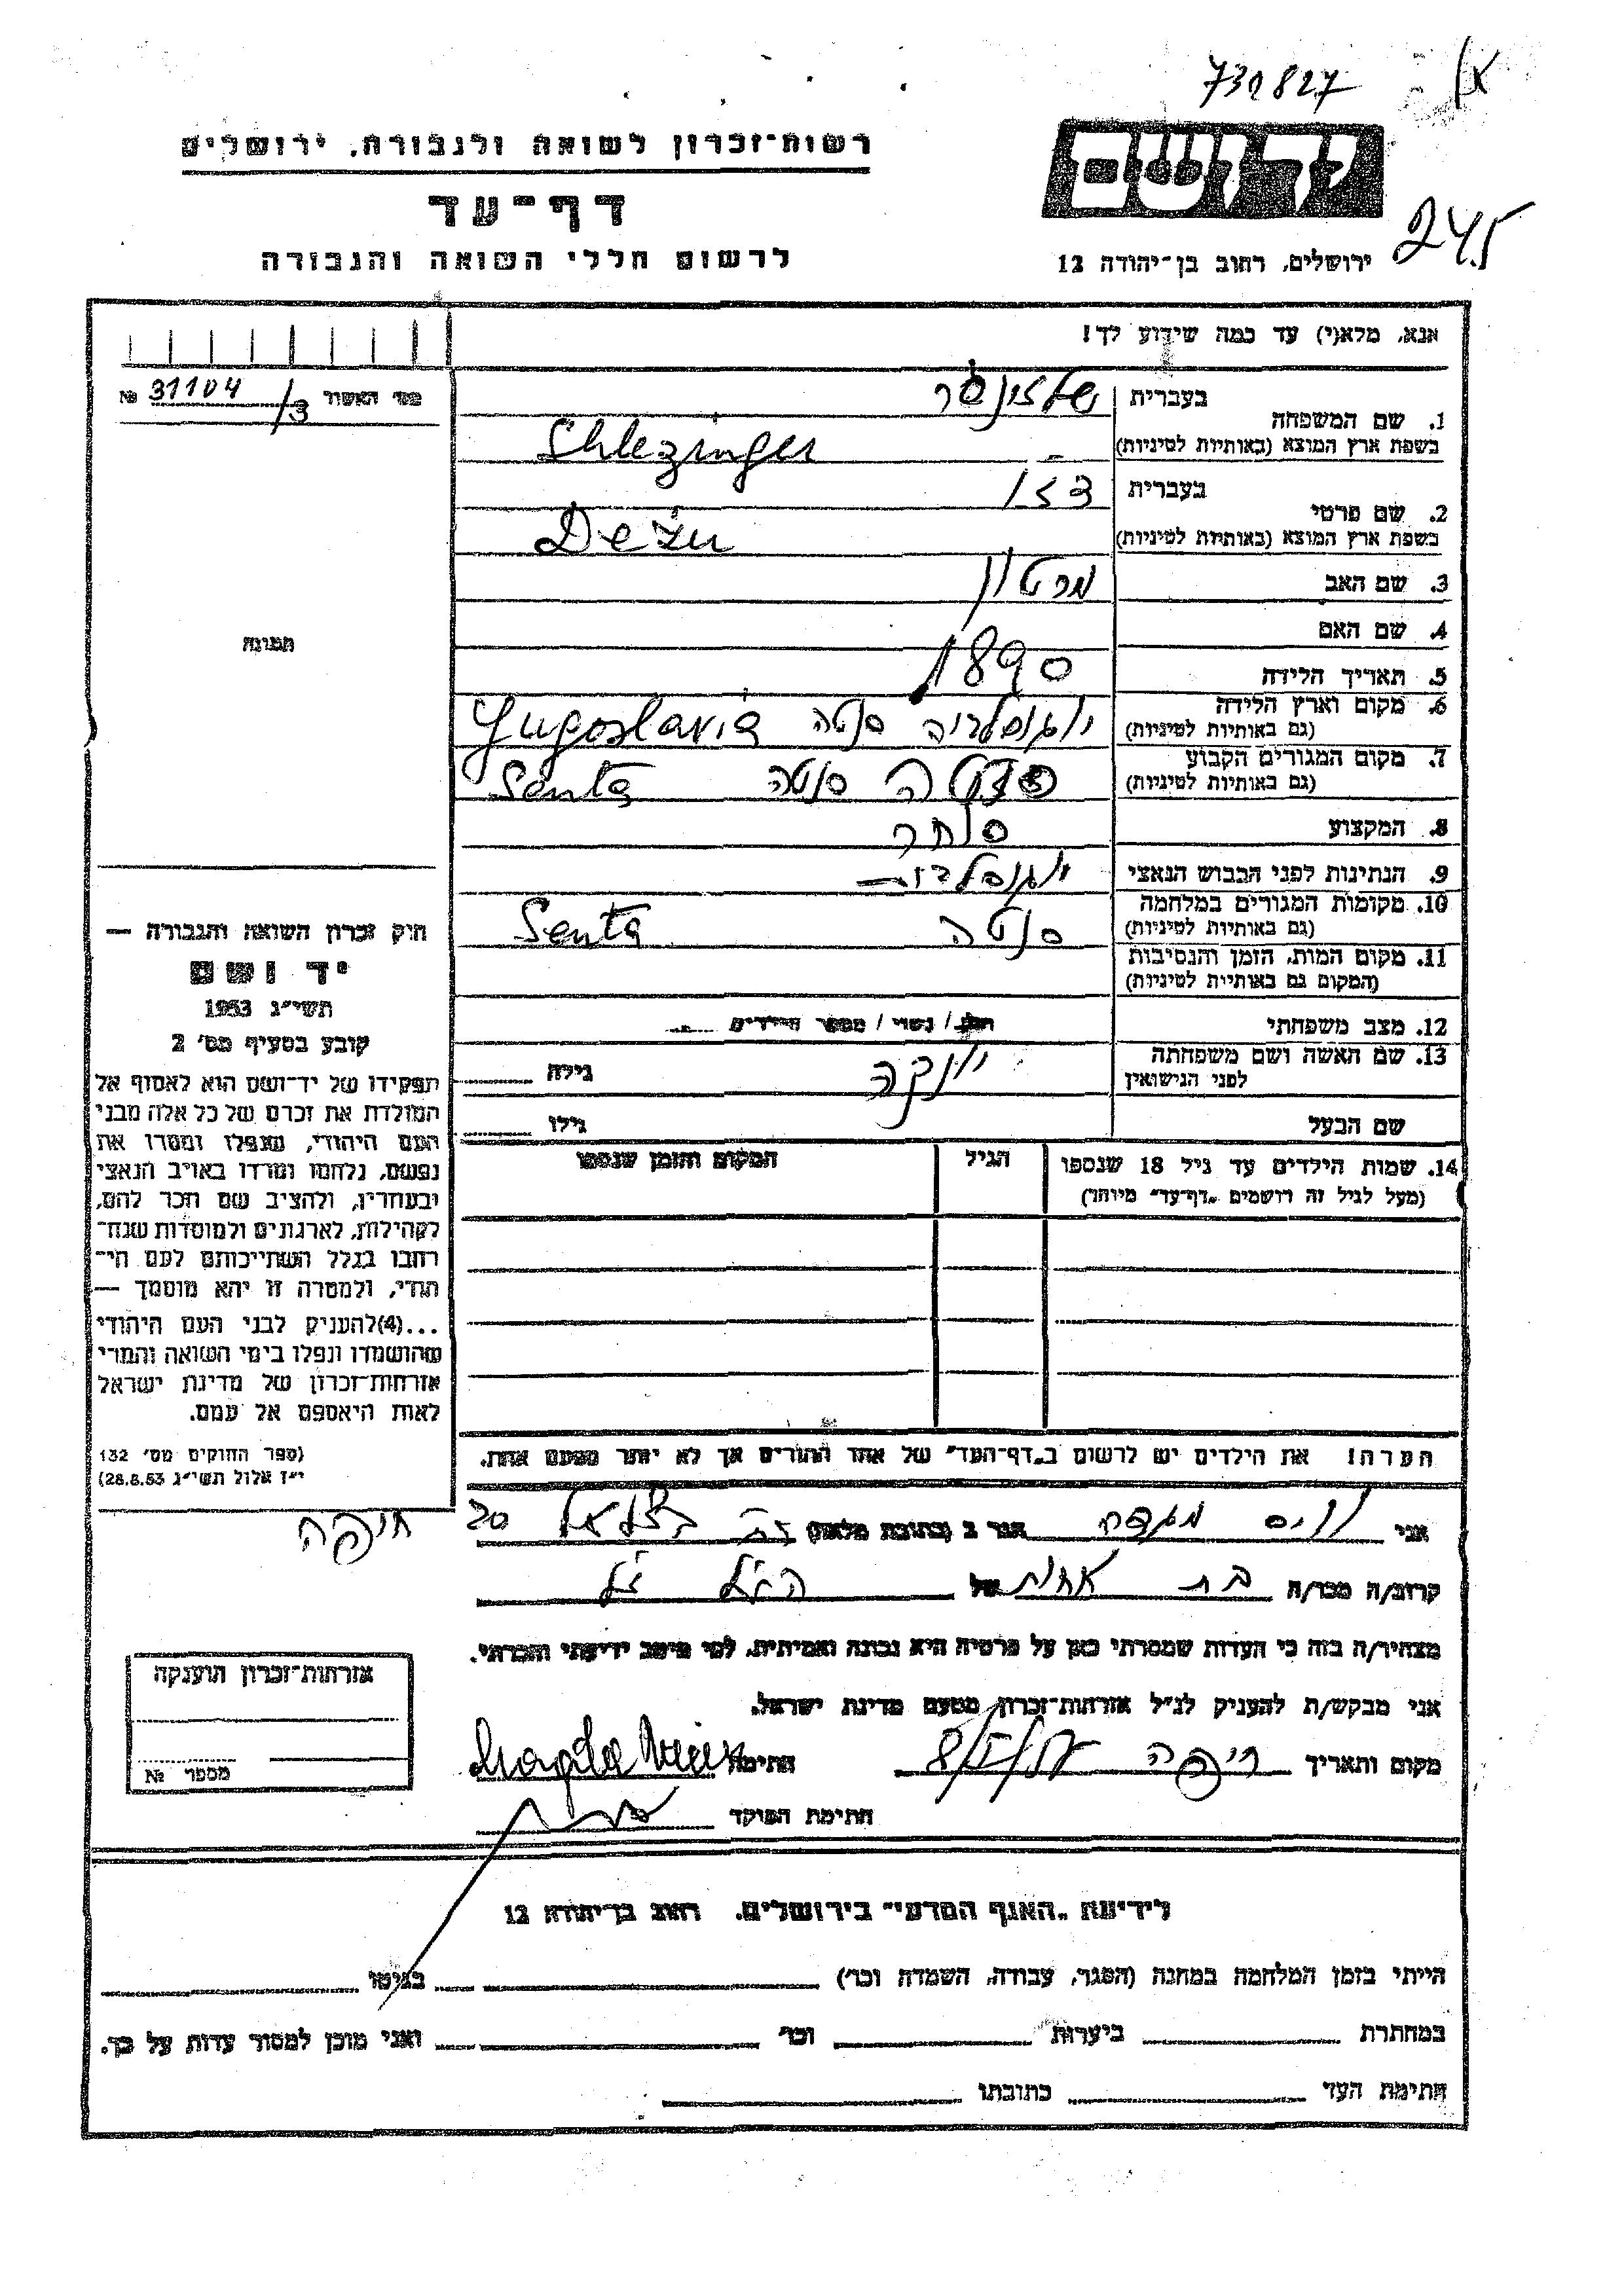 730827
רשות־זכרון לשואה ולגבורה, ירושלים
דף־עד
לרשום חללי השואה והגבורה
יד ושם
ירושלים, רחוב בן־יהודה 12
245
אנא, מלא(י) עד כמה שידוע לך!
מס׳ האשור 31104/3 №
1. שם המשפחה
בעברית שלזינגר
בשפת ארץ המוצא (באותיות לטיניות) Shlezinger
2. שם פרטי
בעברית דזו
בשפת ארץ המוצא (באותיות לטיניות) Dežu
3. שם האב מרטון
4. שם האם
5. תאריך הלידה 1890
6. מקום וארץ הלידה (גם באותיות לטיניות) יוגוסלביה סנטה Yugoslavia
7. מקום המגורים הקבוע (גם באותיות לטיניות) סנטה Senta
8. המקצוע סוחר
9. הנתינות לפני הכבוש הנאצי
10. מקומות המגורים במלחמה (גם באותיות לטיניות) סנטה Senta
11. מקום המות, הזמן והנסיבות (המקום גם באותיות לטיניות)
12. מצב משפחתי רווק / נשוי / מספר הילדים
13. שם האשה ושם משפחתה לפני הנישואין יונקה גילה
שם הבעל גילו
14. שמות הילדים עד גיל 18 שנספו (מעל לגיל זה רושמים „דף־עד" מיוחד)
הגיל
המקום והזמן שנספו
הערה! את הילדים יש לרשום ב„דף־העד" של אחד ההורים אך לא יותר מפעם אחת.
תמונה
חוק זכרון השואה והגבורה —
יד ושם
תשי״ג 1953
קובע בסעיף מס׳ 2
תפקידו של יד־ושם הוא לאסוף אל
המולדת את זכרם של כל אלה מבני
העם היהודי, שנפלו ומסרו את
נפשם, נלחמו ומרדו באויב הנאצי
ובעוזריו, ולהציב שם וזכר להם,
לקהילות, לארגונים ולמוסדות שנח־
רבו בגלל השתייכותם לעם הי־
הודי, ולמטרה זו יהא מוסמך —
...(4)להעניק לבני העם היהודי
שהושמדו ונפלו בימי השואה והמרי
אזרחות־זכרון של מדינת ישראל
לאות היאספם אל עמם.
(ספר החוקים מס׳ 132
י״ז אלול תשי״ג 28.8.53)
אני וויס מגדה הגר ב (כתובת מלאה) רח בצלאל 20 חיפה
קרוב/ה מכר/ה בת אחות של הנ״ל ז״ל
מצהיר/ה בזה כי העדות שמסרתי כאן על פרטיה היא נכונה ואמיתית, לפי מיטב ידיעתי והכרתי.
אני מבקש/ת להעניק לנ״ל אזרחות־זכרון מטעם מדינת ישראל.
מקום ותאריך חיפה חתימה Magda Weisz
חתימת הפוקד
אזרחות־זכרון הוענקה
מספר №
לידיעת „האגף המדעי" בירושלים, רחוב בן־יהודה 12
הייתי בזמן המלחמה במחנה (הסגר, עבודה, השמדה וכו׳) בגיטו
במחתרת ביערות וכו׳ ואני מוכן למסור עדות על כך.
חתימת העד כתובתו